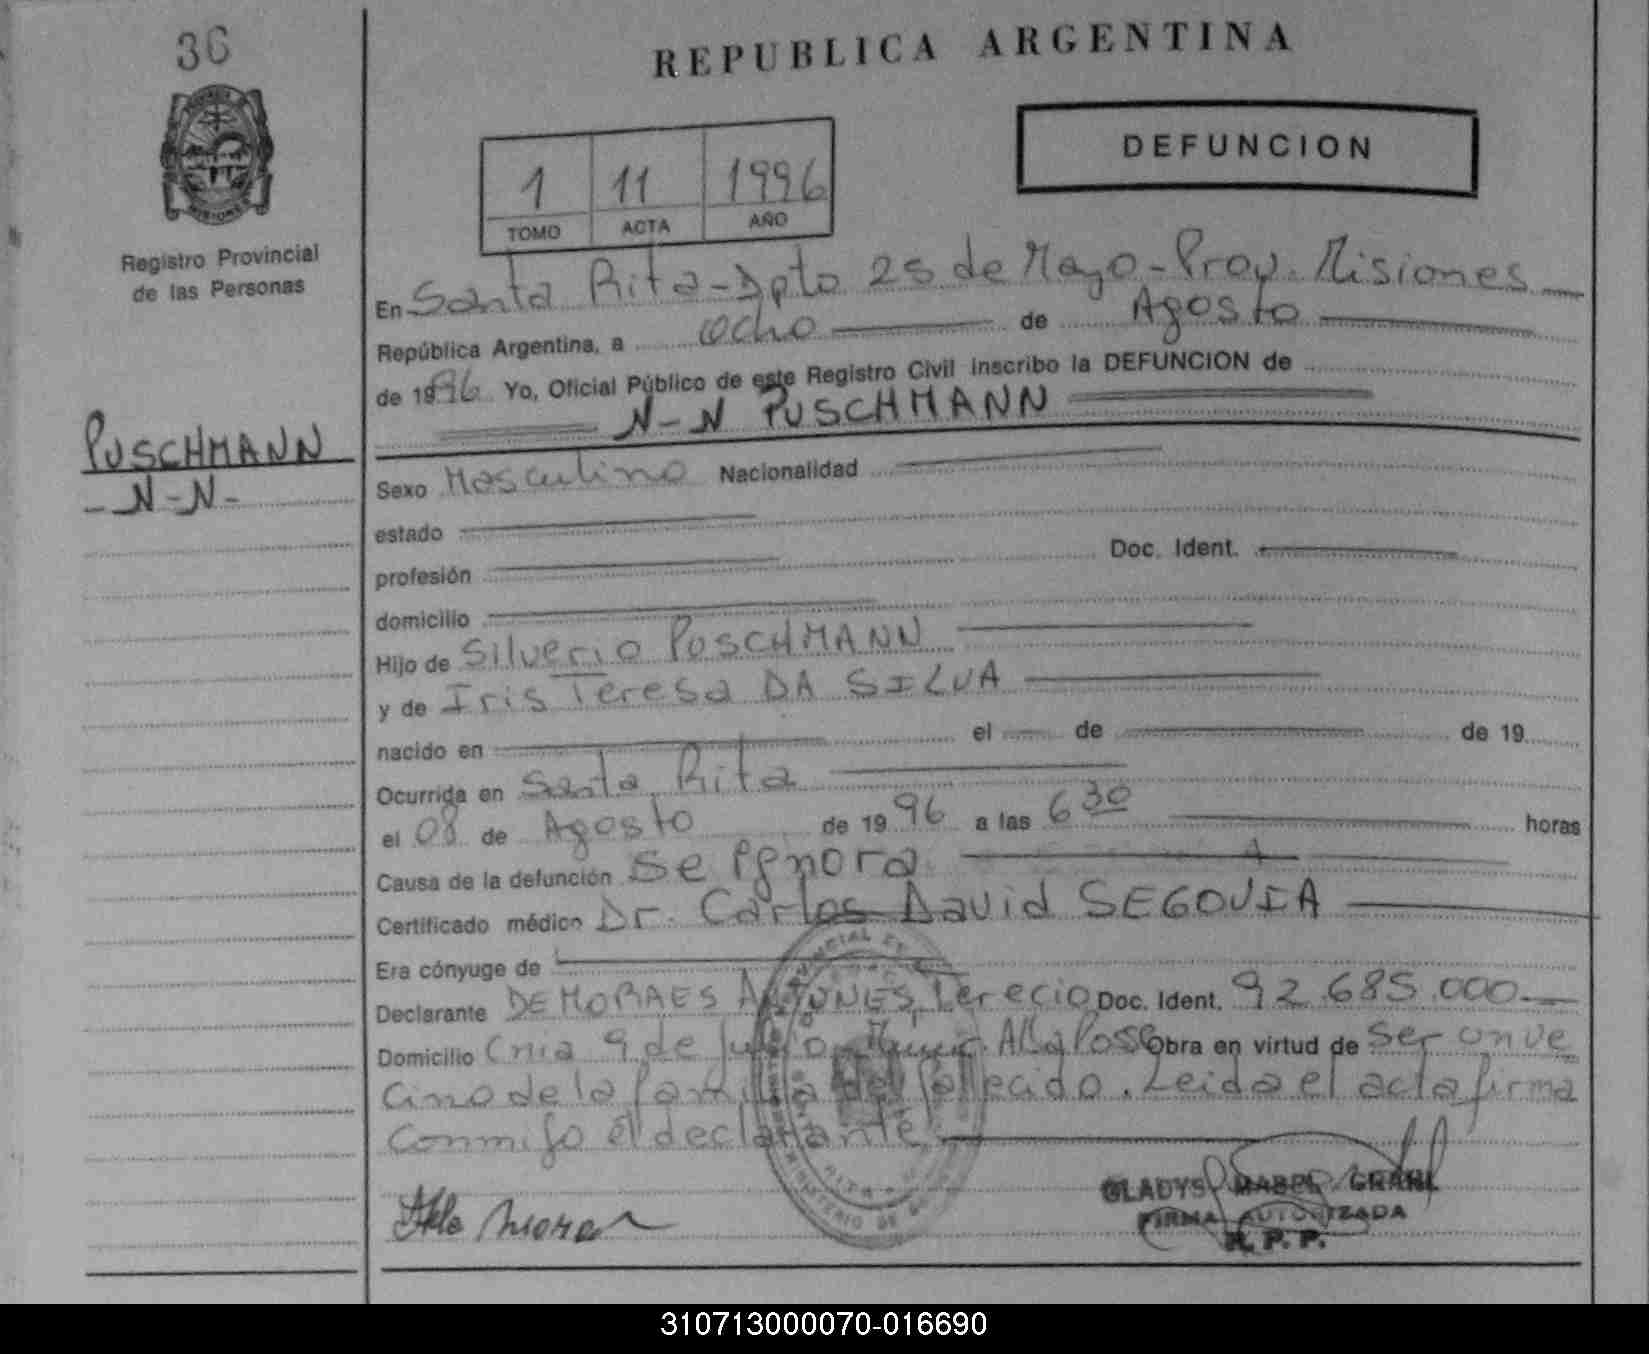 36
REPUBLICA ARGENTINA
DEFUNCION
1 11 1996
TOMO ACTA AÑO
Registro Provincial
de las Personas
En Santa Rita - Dpto 25 de Mayo - Prov. Misiones
República Argentina, a ocho de Agosto
de 1996 Yo, Oficial Público de este Registro Civil inscribo la DEFUNCION de
N-N PUSCHMANN
PUSCHMANN
- N - N -
Sexo Masculino Nacionalidad
estado
profesión Doc. Ident.
domicilio
Hijo de Silverio PUSCHMANN
y de Iris Teresa DA SILVA
nacido en el de de 19
Ocurrida en Santa Rita
el 08 de Agosto de 1996 a las 6 30 horas
Causa de la defunción Se ignora
Certificado médico Dr. Carlos David SEGOVIA
Era cónyuge de
Declarante DE MORAES ANTUNES, Terecio Doc. Ident. 92.685.000
Domicilio Cnia 9 de Julio Obra en virtud de ser un ve
cino de la familia del fallecido. Leida el acta firma
conmigo el declarante
GLADYS MABEL GRAHL
FIRMA AUTORIZADA
R. P. P.
310713000070-016690